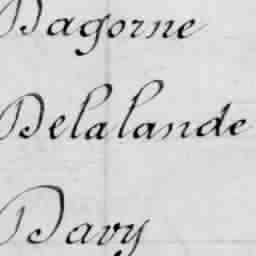 Dagorne
Delalande
Davy